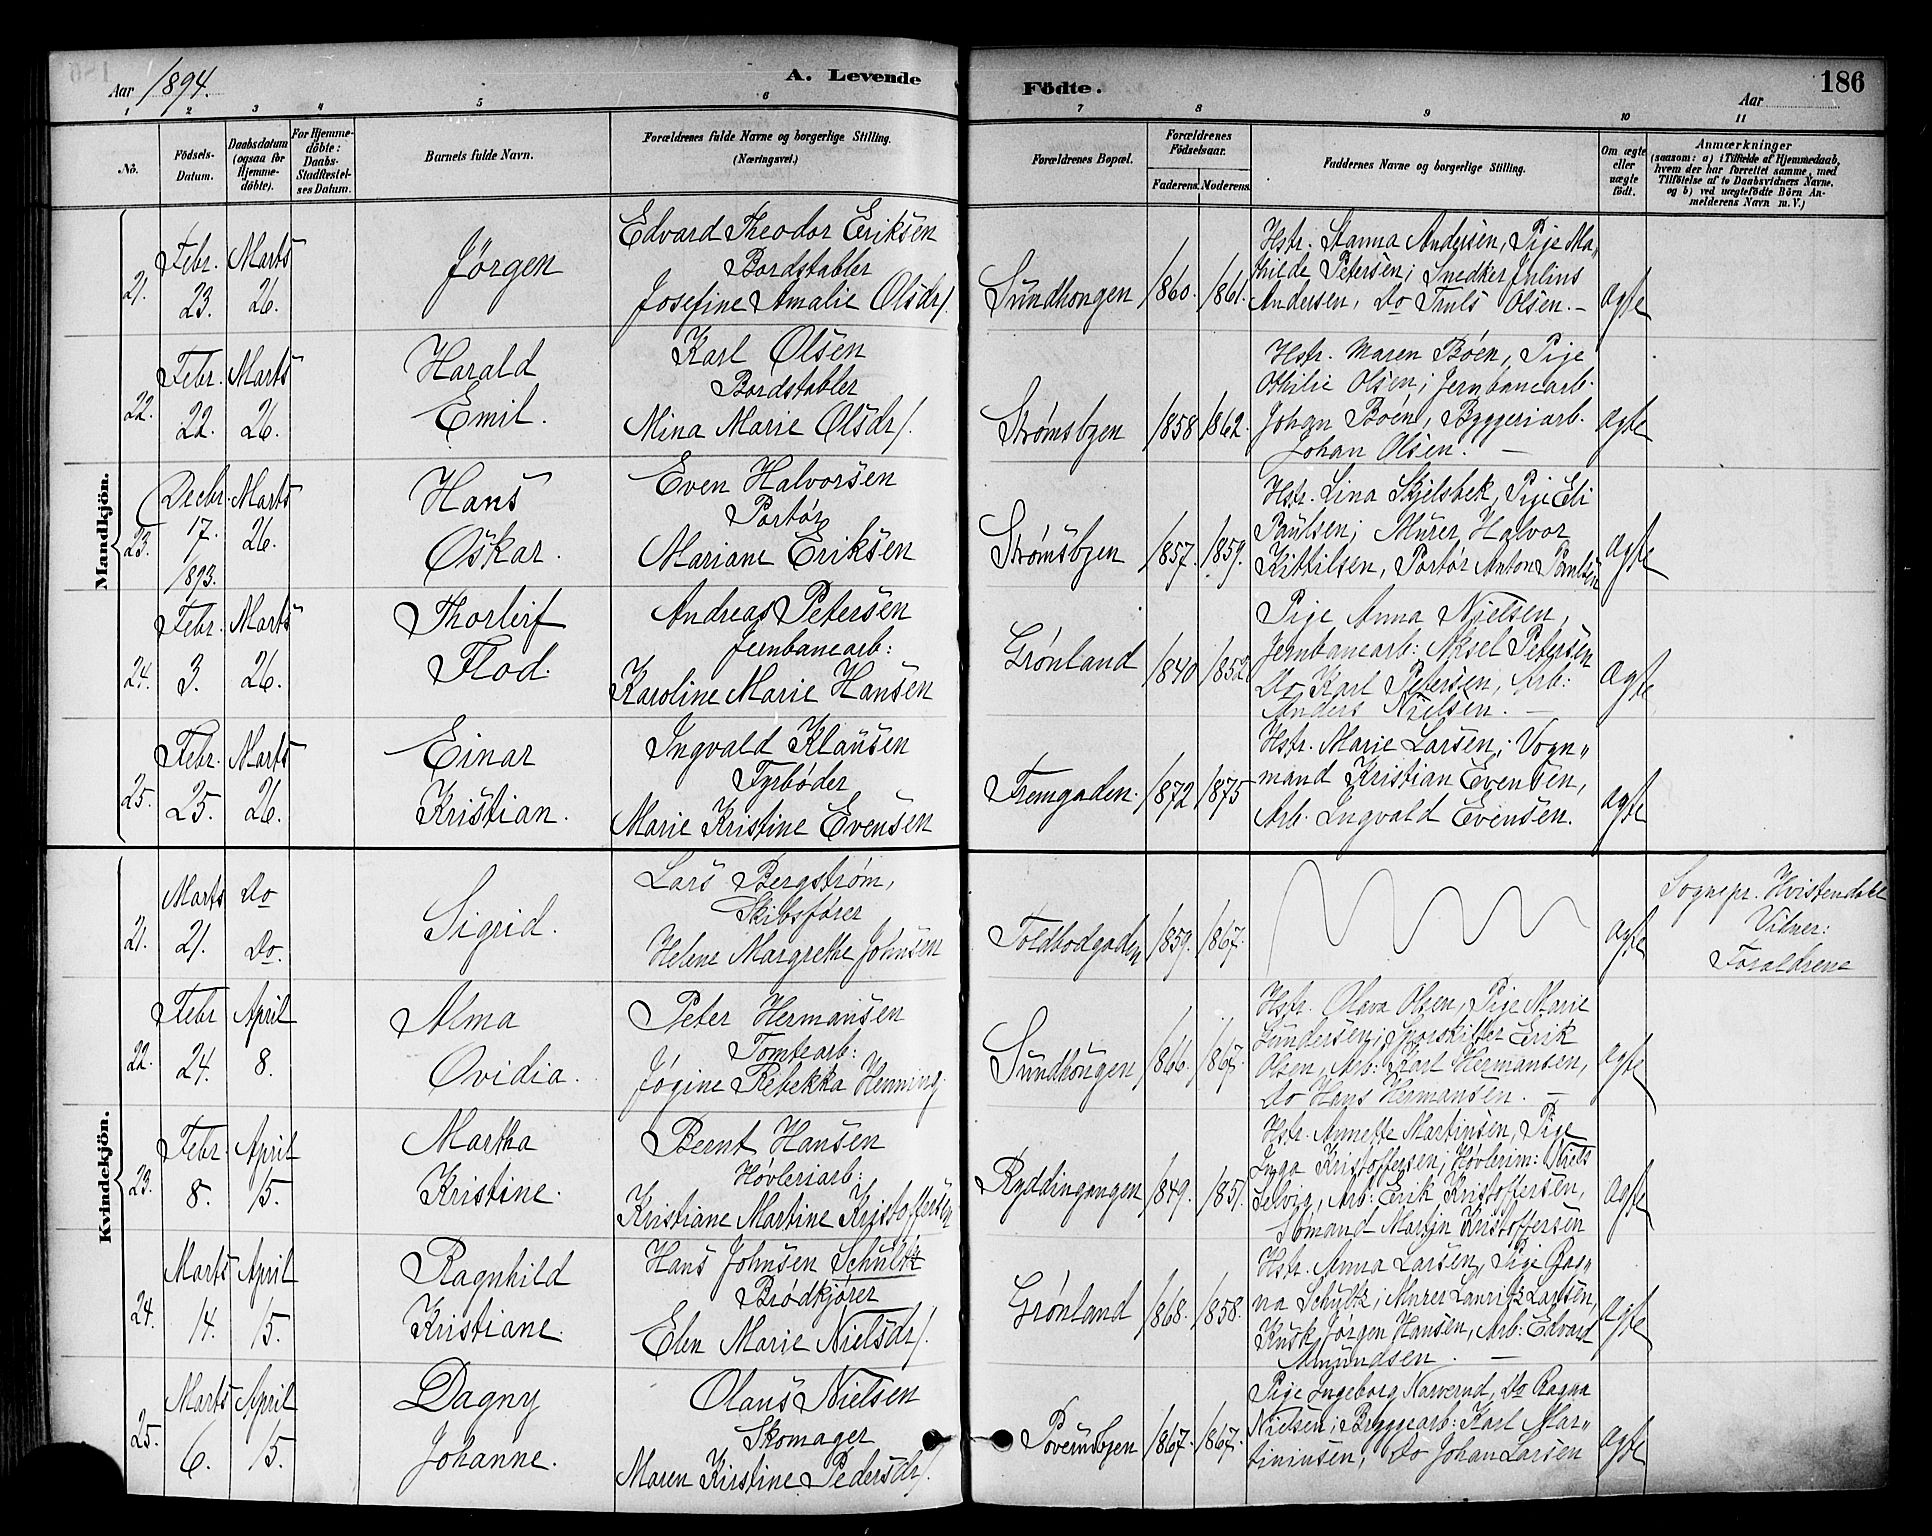 Aar 1894.
A. Levende
Födte.
Aar
186
1 2 3 4 5 6 7 8 9 10 11
No.
Födsels-Datum.
Daabsdatum (ogsaa for Hjemme-döbte).
For Hjemme-döbte: Daabs-Stadfæstel-ses Datum.
Barnets fulde Navn.
Forældrenes fulde Navne og borgerlige Stilling. (Næringsvei.)
Forældrenes Bopæl.
Forældrenes Födselsaar.
Faderens. Moderens.
Faddernes Navne og borgerlige Stilling.
Om ægte eller uægte födt.
Anmærkninger
(saasom: a) i Tilfælde af Hjemmedaab, hvem der har forrettet samme, med Tilföielse af to Daabsvidners Navne, og b) ved uægtefödte Börn An-melderens Navn m. V.)
Mandkjön.
21.
Febr. 23.
Marts 26.
Jörgen
Edvard Theodor Eriksen
Bordstabler
Josefine Amalie Olsdr.
Sundhougen
1860. 1861.
Hstr. Hanna Andersen, Pige Ma-
thilde Petersen; Snedker Julius
Andersen, Do Truls Olsen. —
ægte
22.
Febr. 22.
Marts 26.
Harald
Emil.
Karl Olsen
Bordstabler
Mina Marie Olsdr.
Strømsbyen
1858 1862.
Hstr. Maren Böen, Pige
Othilie Olsen; Jernbanearb.
Johan Böen, Byggeriarb.
Johan Olsen. —
ægte
23.
Decbr. 17. 1893.
Marts 26.
Hans
Oskar.
Even Halvorsen
Portør
Mariane Eriksen
Strømsbyen
1857. 1859.
Hstr. Lina Skjelsbek, Pige Eli
Paulsen; Murer Halvor
Kittilsen, Portør Anton Paulsen
ægte
24.
Febr. 3.
Marts 26.
Thorleif
Flod.
Andreas Petersen
Jernbanearb:
Karoline Marie Hansen
Grønland
1840 1852
Pige Anna Nielsen,
Jernbanearb: Aksel Petersen
Do Karl Petersen, Arb:
Anders Nielsen. —
ægte
25.
Febr. 25.
Marts 26.
Einar
Kristian.
Ingvald Klausen
Fyrbøder
Marie Kristine Evensen
Fremgaden.
1872 1875
Hstr. Marie Larsen; Vogn-
mand Kristian Evensen,
Arb. Ingvald Evensen.
ægte
Kvindekjön.
21.
Marts 21.
Do Do.
Sigrid.
Lars Bergstrøm,
Skibsfører
Helene Margrethe Johnsen
Toldbodgaden
1859. 1867.
ægte
Sognepr. Hvistendahl
Vitner:
Forældrene
22.
Febr 24.
April 8.
Alma
Ovidia.
Peter Hermansen
Tomtearb:
Jögine Rebekka Henning.
Sundhougen
1866. 1867.
Hstr. Olava Olsen, Pige Marie
Gundersen; Sporskifter Erik
Olsen, Arb: Karl Hermansen,
Do Hans Hermansen. —
ægte
23.
Febr. 8.
April 15.
Martha
Kristine.
Bernt Hansen
Høvleriarb:
Kristiane Martine Kristoffersen
Ryddingangen
1849. 1851.
Hstr. Annette Martinsen, Pige
Inga Kristoffersen; Høvlerim: Niels
Selvig, Arb: Erik Kristoffersen,
Sömand Martin Kristoffersen
ægte
24.
Marts 14.
April 15.
Ragnhild
Kristiane.
Hans Johnsen Schultz
Brødkjører
Elen Marie Nielsdr.
Grønland
1868. 1858.
Hstr. Anna Larsen, Pige Rag-
na Schultz; Murer Lauritz Larsen,
Kusk Jørgen Hansen, Arb: Edvard
Amundsen. —
ægte
25.
Marts 6.
April 15.
Dagny
Johanne.
Olaus Nielsen
Skomager
Maren Kirstine Pedersdr.
1867. 1867.
Pige Ingeborg Narverud, Do Ragna
Nielsen; Byggearb: Karl Mar-
tiniusen, Do Johan Larsen
ægte